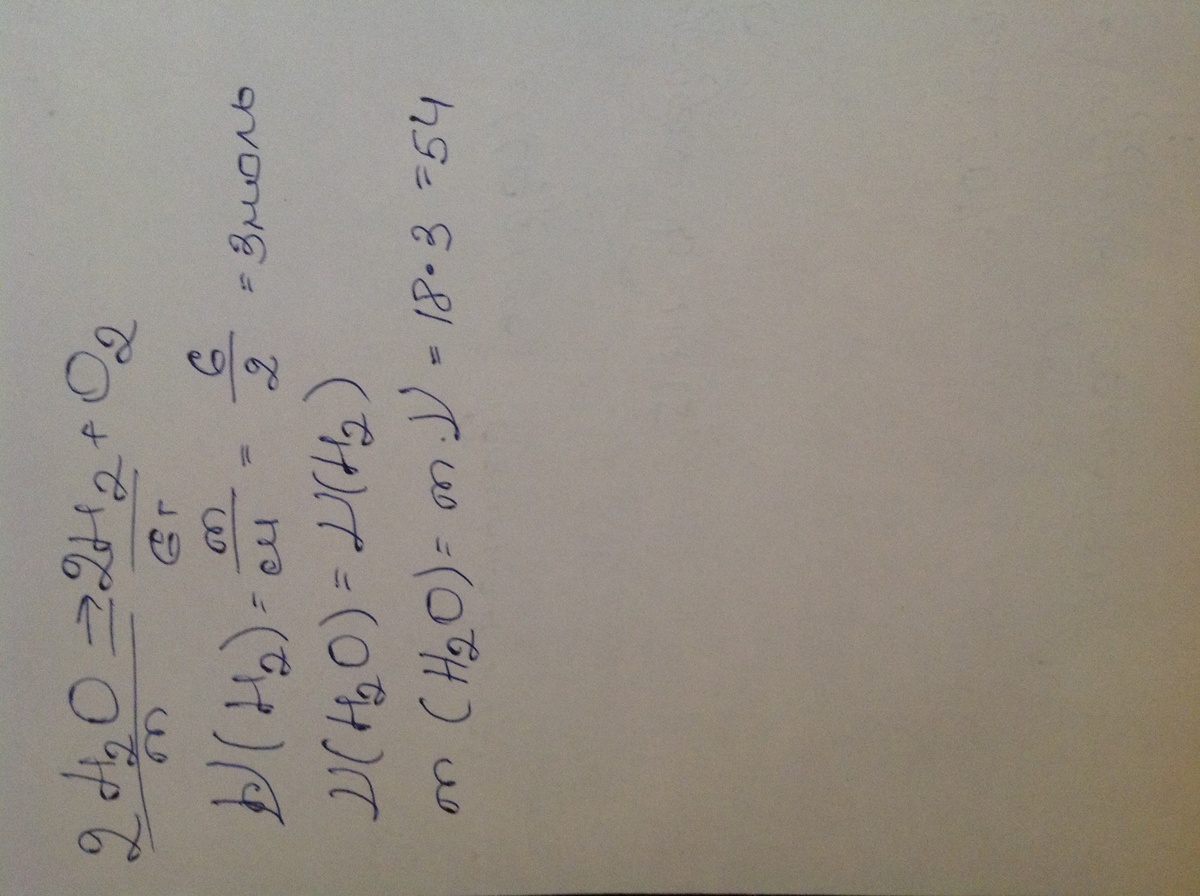 2H₂O => 2H₂ + O₂
m 6г
ν(H₂) = m/м = 6/2 = 3моль
ν(H₂O) = ν(H₂)
m(H₂O) = m·ν = 18·3 = 54